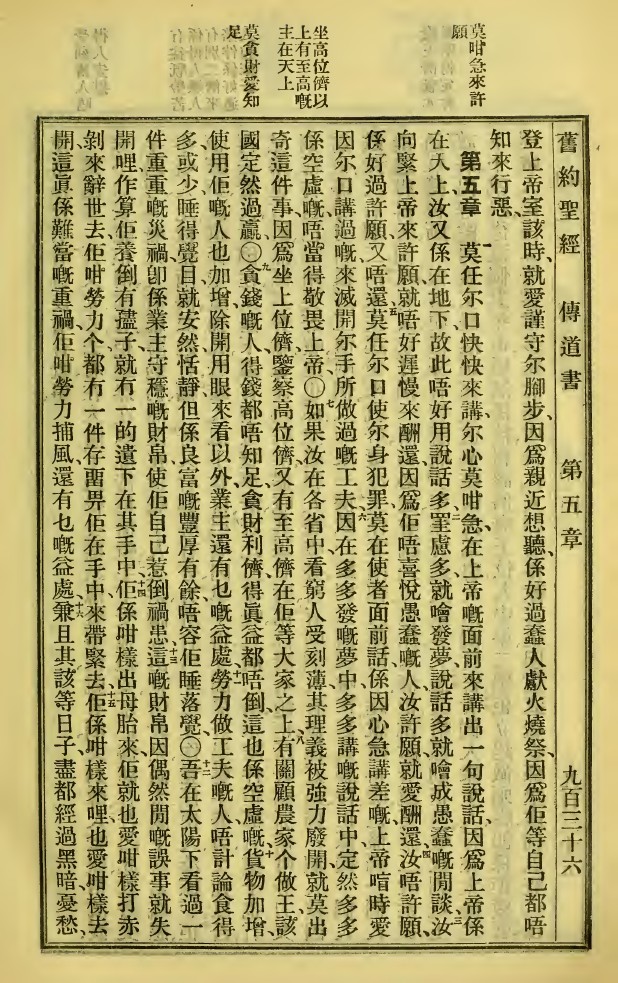 舊約聖經 傳道書 第五章 九百三十六
登上帝室該時、就愛謹守尔脚步、因爲親近想聽、係好過蠢人獻火燒祭、因爲佢等自己都唔
知來行惡、
莫咁急來許
願
第五章 一莫任尔口快快來講、尔心莫咁急、在上帝嘅面前來講出一句說話、因爲上帝係
在天上、汝又係在地下、故此唔好用說話多、二罣慮多就噲發夢、說話多、就噲成愚蠢嘅閒談、三汝
向緊上帝來許願、就唔好遲慢來酬還、因爲佢唔喜悅愚蠢嘅人、汝許願就愛酬還、四汝唔許願、
係好過許願又唔還、五莫任尔口使尔身犯罪、莫在使者面前話、係因心急講差嘅、上帝喑時愛
因尔口講過嘅、來滅開尔手所做過嘅工夫、六因在多多發嘅夢中、多多講嘅說話中、定然多多
係空虛嘅、唔當得敬畏上帝、〇七如果汝在各省中、看窮人受刻薄、其理義被強力廢開、就莫出
坐高位儕以
上有至高嘅
主在天上
奇這件事、因爲坐上位儕、鑒察高位儕、又有至高儕在佢等大家之上、八有關顧農家个做王、該
國定然過贏、〇九貪錢嘅人、得錢都唔知足、貪財利儕、得眞益都唔倒、這也係空虛嘅、十貨物加增、
莫貪財愛知
足
使用佢嘅人也加增、除開用眼來看以外、業主還有乜嘅益處、十一勞力做工夫嘅人、唔計論食得
多或少、睡得覺目、就安然恬靜、但係良富嘅豐厚有餘、唔容佢睡落覺、〇十二吾在太陽下看過一
件重重嘅災禍、卽係業主守穩嘅財帛、使佢自己惹倒禍患、十三這嘅財帛、因偶然閒嘅誤事就失
開哩、作算佢養倒有孻子、就冇一的遺下在其手中、十四佢係咁樣出母胎來、佢就也愛咁樣打赤
剝來辭世去、佢咁勞力个都冇一件存畱畀佢在手中來帶緊去、十五佢係咁樣來哩、也愛咁樣去
開、這眞係難當嘅重禍、佢咁勞力捕風、還有乜嘅益處、十六兼且其該等日子、盡都經過黑暗、憂愁、